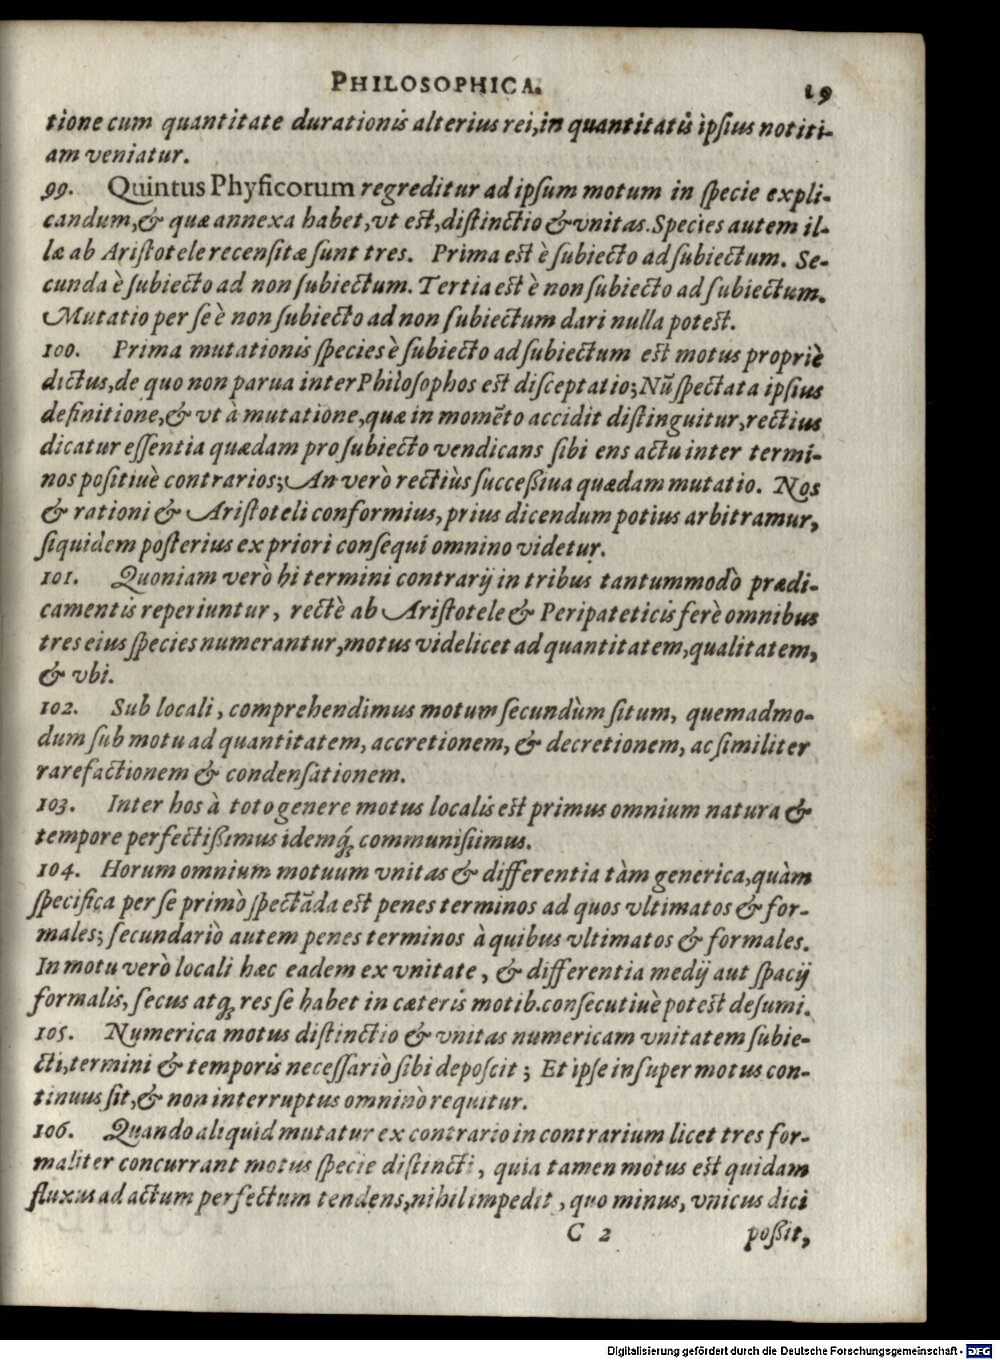 PHILOSOPHICA. 19
tione cum quantitate durationis alterius rei, in quantitatis ipſius notiti-
am veniatur.
99. Quintus Phyſicorum regreditur ad ipſum motum in ſpecie expli-
candum, & quæ annexa habet, vt eſt, diſtinctio & vnitas. Species autem il-
læ ab Ariſtotele recenſitæ ſunt tres. Prima eſt è ſubiecto ad ſubiectum. Se-
cunda è ſubiecto ad non ſubiectum. Tertia eſt è non ſubiecto ad ſubiectum.
Mutatio per ſe è non ſubiecto ad non ſubiectum dari nulla poteſt.
100. Prima mutationis ſpecies è ſubiecto ad ſubiectum eſt motus propriè
dictus, de quo non parua inter Philoſophos eſt diſceptatio; Nũ ſpectata ipſius
definitione, & vt à mutatione, quæ in momẽto accidit diſtinguitur, rectius
dicatur eſſentia quædam pro ſubiecto vendicans ſibi ens actu inter termi-
nos poſitiuè contrarios; An verò rectiùs ſucceßiua quædam mutatio. Nos
& rationi & Ariſtoteli conformius, prius dicendum potius arbitramur,
ſiquidem poſterius ex priori conſequi omnino videtur.
101. Quoniam verò hi termini contrarij in tribus tantummodò prædi-
camentis reperiuntur, rectè ab Ariſtotele & Peripateticis ferè omnibus
tres eius ſpecies numerantur, motus videlicet ad quantitatem, qualitatem,
& vbi.
102. Sub locali, comprehendimus motum ſecundùm ſitum, quemadmo-
dum ſub motu ad quantitatem, accretionem, & decretionem, ac ſimiliter
rarefactionem & condenſationem.
103. Inter hos à toto genere motus localis eſt primus omnium natura &
tempore perfectißimus idemq́ꝫ communiſſimus.
104. Horum omnium motuum vnitas & differentia tàm generica, quàm
ſpecifica per ſe primò ſpectãda eſt penes terminos ad quos vltimatos & for-
males; ſecundariò autem penes terminos à quibus vltimatos & formales.
In motu verò locali hæc eadem ex vnitate, & differentia medij aut ſpacij
formalis, ſecus atq́ꝫ res ſe habet in cæteris motib. conſecutiuè poteſt deſumi.
105. Numerica motus diſtinctio & vnitas numericam vnitatem ſubie-
cti, termini & temporis neceſſariò ſibi depoſcit; Et ipſe inſuper motus con-
tinuus ſit, & non interruptus omninò requitur.
106. Quando aliquid mutatur ex contrario in contrarium licet tres for-
maliter concurrant motus ſpecie diſtincti, quia tamen motus eſt quidam
fluxus ad actum perfectum tendens, nihil impedit, quo minus, vnicus dici
C 2 poßit,
Digitalisierung gefördert durch die Deutsche Forschungsgemeinschaft - DFG